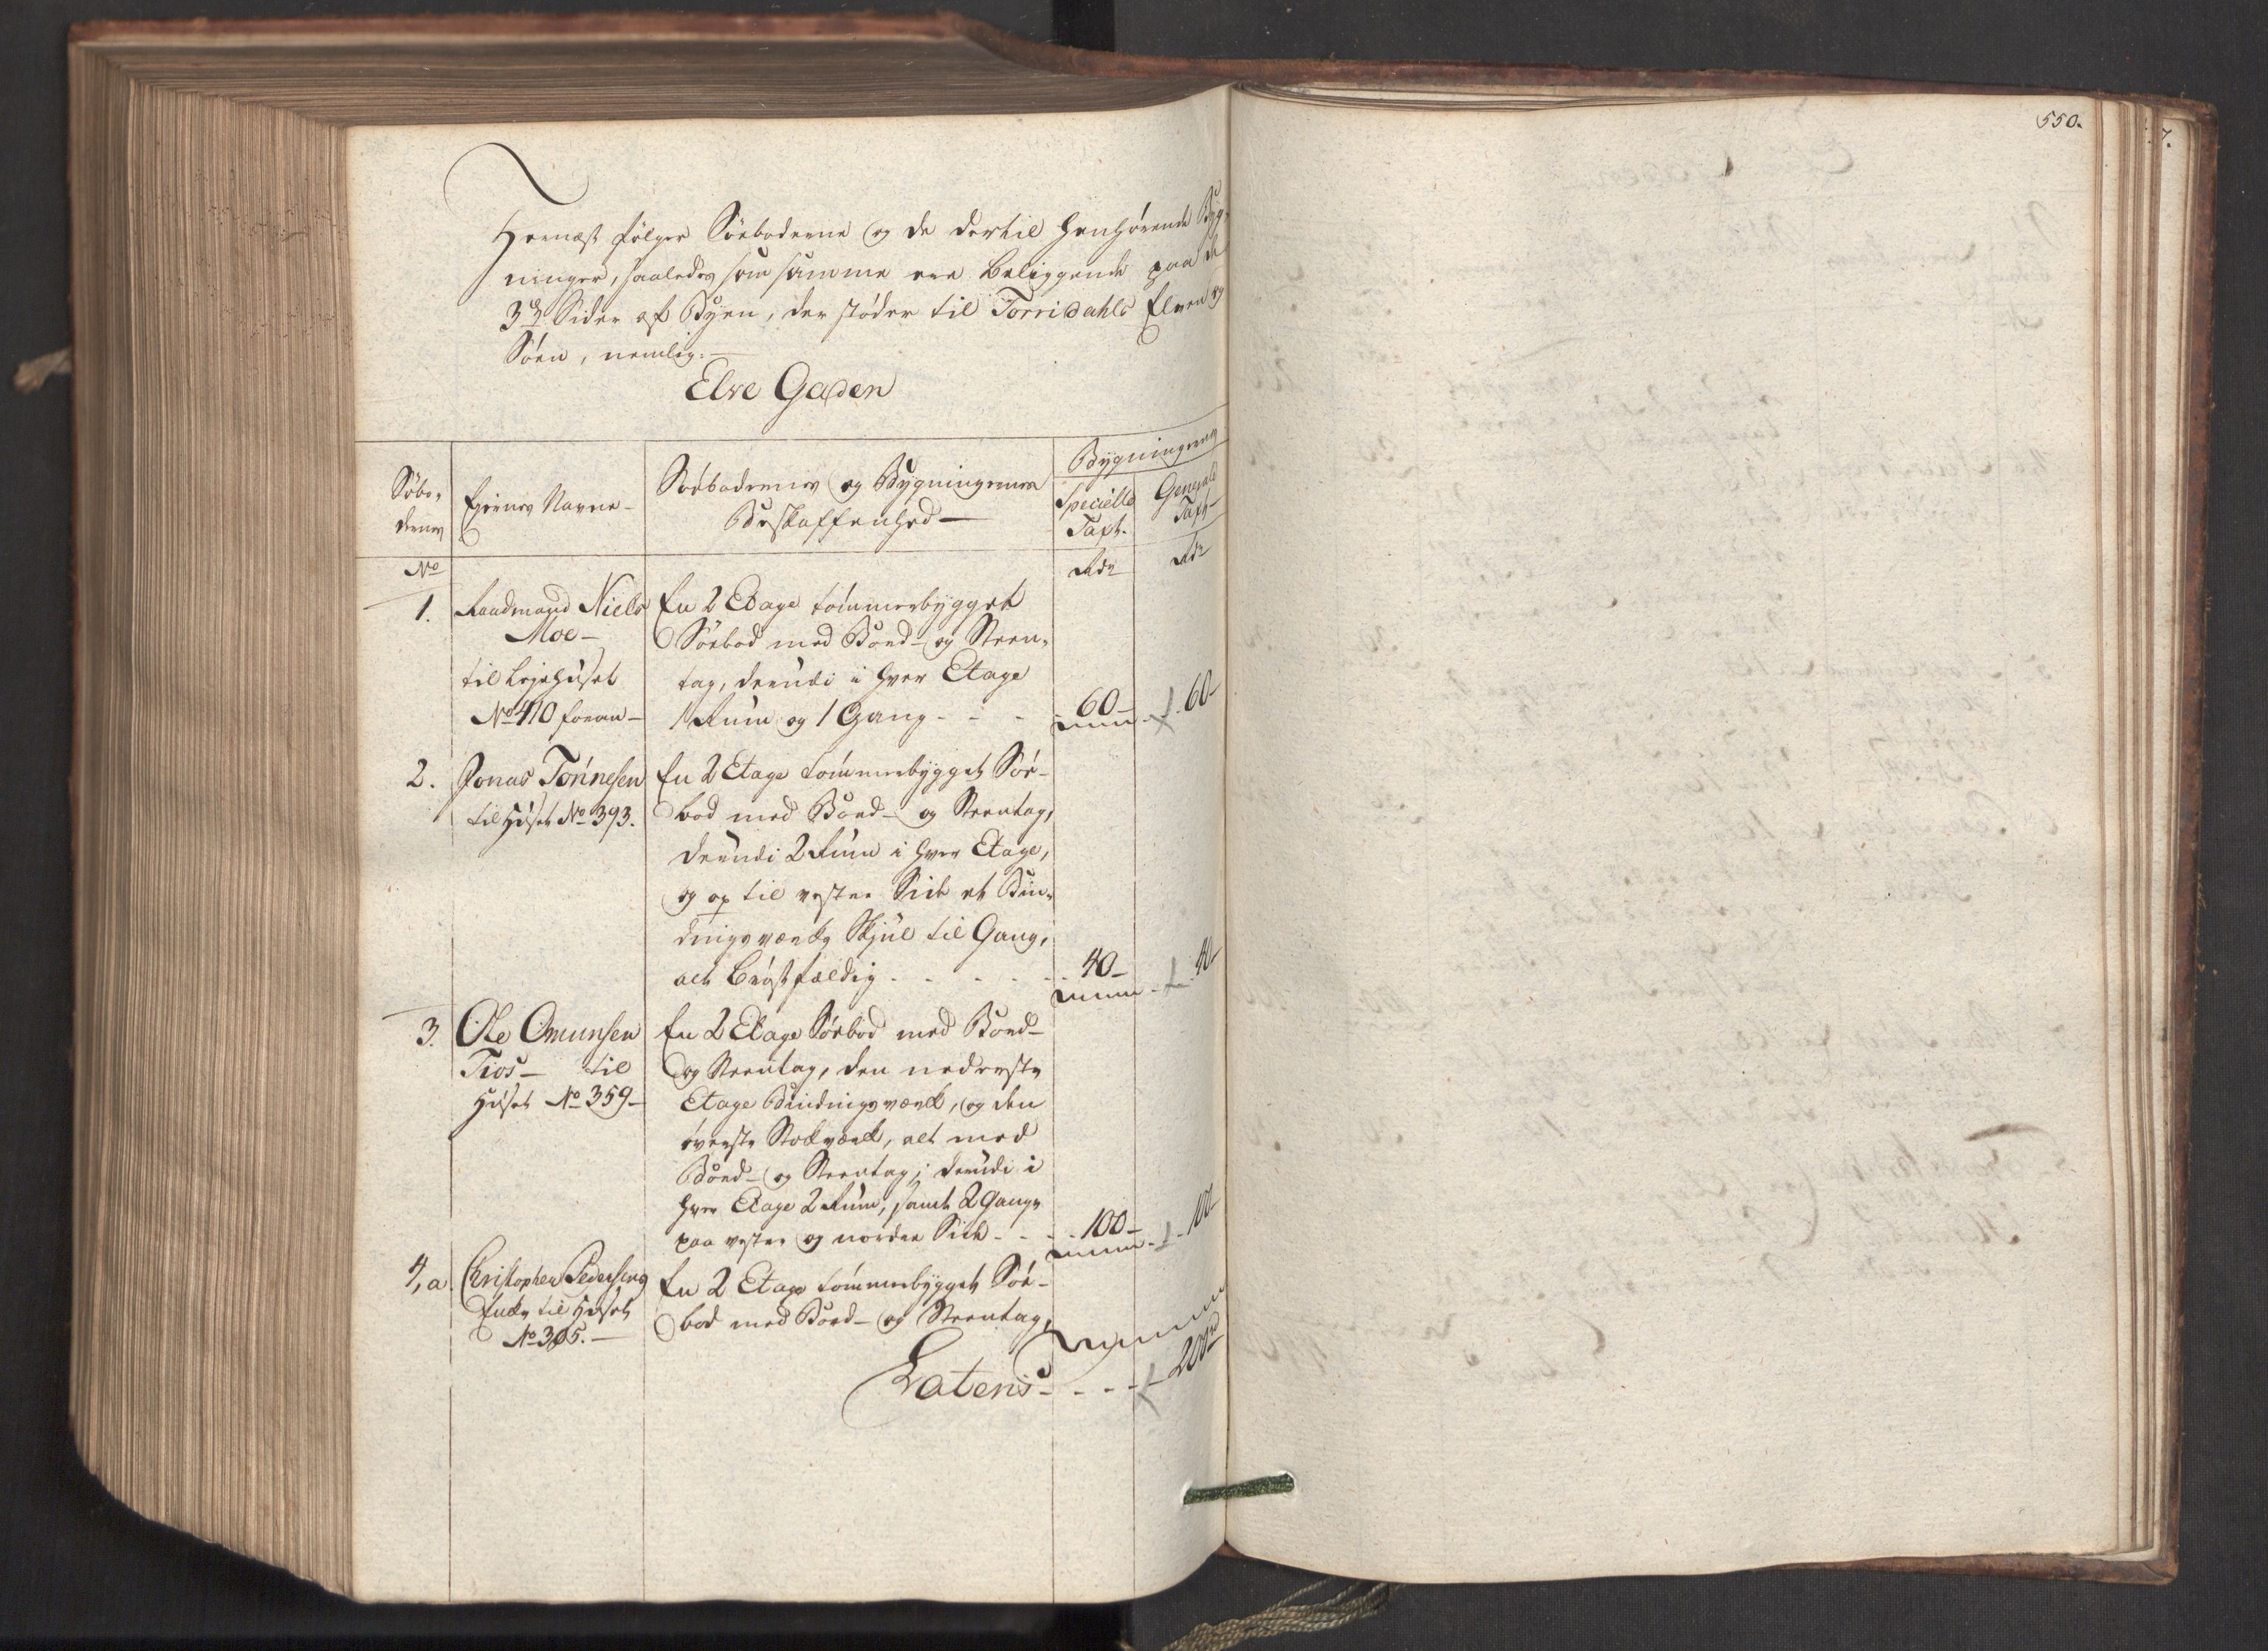 550.
7.
Hernæst følger Söeboderne og de dertil henhørende Byg-
ninger, saaledes som samme ere beliggende paa de
3de Sider af Byen, der støder til Torridahls Elven og
Söen, nemlig:
Elve Gaden
Söbo-
dernes
Eiernes Navne
Söebodernes og Bygningernes
Beskaffenhed
Bygningernes
Specielle
Taxt.
Generale
Taxt
No
Rdr
Rdr
1. Raadmand Niels
Moe
til Lejehuset
No 410 foran
En 2 Etage tömmerbygget
Söebod med Bord- og Steen-
tag, derudi i hver Etage
1 Rum og 1 Gang - - - 60 - 60
2. Jonas Tönnesen
til Huset No 393.
En 2 Etage tömmerbygget Söe-
bod med Bord- og Steentag,
derudi 2 Rum i hver Etage,
og op til vestre Side et Bin-
dingsværks Skjul til Gang,
alt brøstfældig - - - 40 - 40
3. Ole Omunsen
Tios til
Huset No 359
En 2 Etage Söebod med Bord-
og Steentag, den nederste
Etage Bindingsværk, og den
øverste Stokværk, alt med
Bord- og Steentag; derudi i
hver Etage 2 Rum, samt 2 Gange
paa vestre og nordre Side - - 100 - 100
4, a. Christopher Pedersens
Enke til Huset
No 305.
En 2 Etage tömmerbygget Söe-
bod med Bord- og Steentag,
Lateris - - - 200